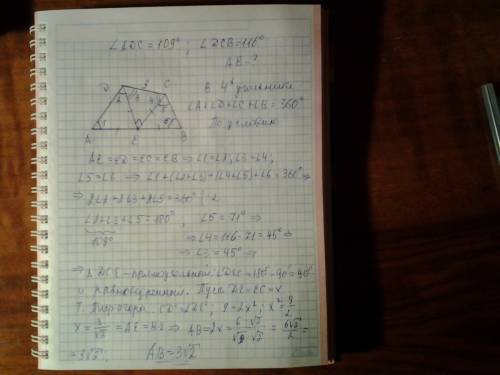 ∠ADC = 109° ; ∠DCB = 116°
AB - ?
D 3 C
2 3 4 5
A 1 E 6 B
В 4х угольнике
∠A + ∠D + ∠C + ∠B = 360°
По условию
AE = ED = EC = EB ⇒ ∠1 = ∠2, ∠3 = ∠4,
∠5 = ∠6 ⇒ ∠1 + (∠2 + ∠3) + (∠4 + ∠5) + ∠6 = 360° ⇒
⇒ 2∠2 + 2∠3 + 2∠5 = 360° | :2
∠2 + ∠3 + ∠5 = 180°, ∠5 = 71° ⇒
109° ⇒ ∠4 = 116 - 71 = 45° ⇒
⇒ ∠3 = 45° ⇒
⇒ Δ DCE - прямоугольный ∠DEC = 180° - 90 = 90°
и равнобедренный. Пусть DE = EC = x
Т. Пифагора 9 = 2x² ; x² = 9/2
x = 3/√2 = AE = EB ⇒ AB = 2x = 6·√2/√2·√2 = 6√2/2 =
= 3√2. AB = 3√2